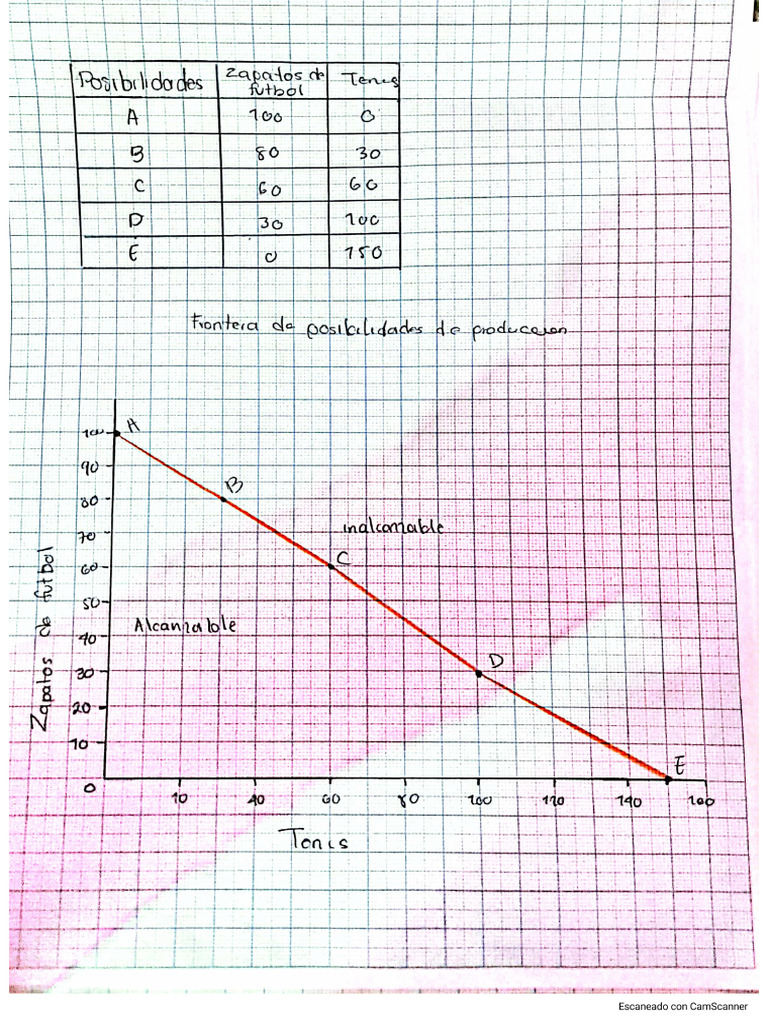 Posibilidades Zapatos de futbol Tenis
A 100 0
B 80 30
C 60 60
D 30 100
E 0 150
Frontera de posibilidades de produccion
100 A
90
80 B
70 inalcanzable
60 C
50
Alcanzable
40
30 D
20
10
E
0 10 40 60 80 100 120 140 160
Zapatos de futbol
Tenis
Escaneado con CamScanner